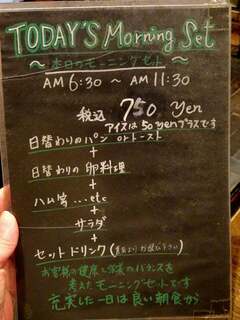 TODAY'S Morning Set
～本日のモーニングセット～
AM 6:30 ～ AM 11:30
税込 750 Yen
アイスは 50 yenプラスです
日替わりのパン orトースト
+
日替わりの 卵料理
+
ハム等 ...etc
+
サラダ
+
セットドリンク (裏面よりお選び下さい)
お客様の健康と栄養のバランスを
考えたモーニングセットです
充実した一日は良い朝食から